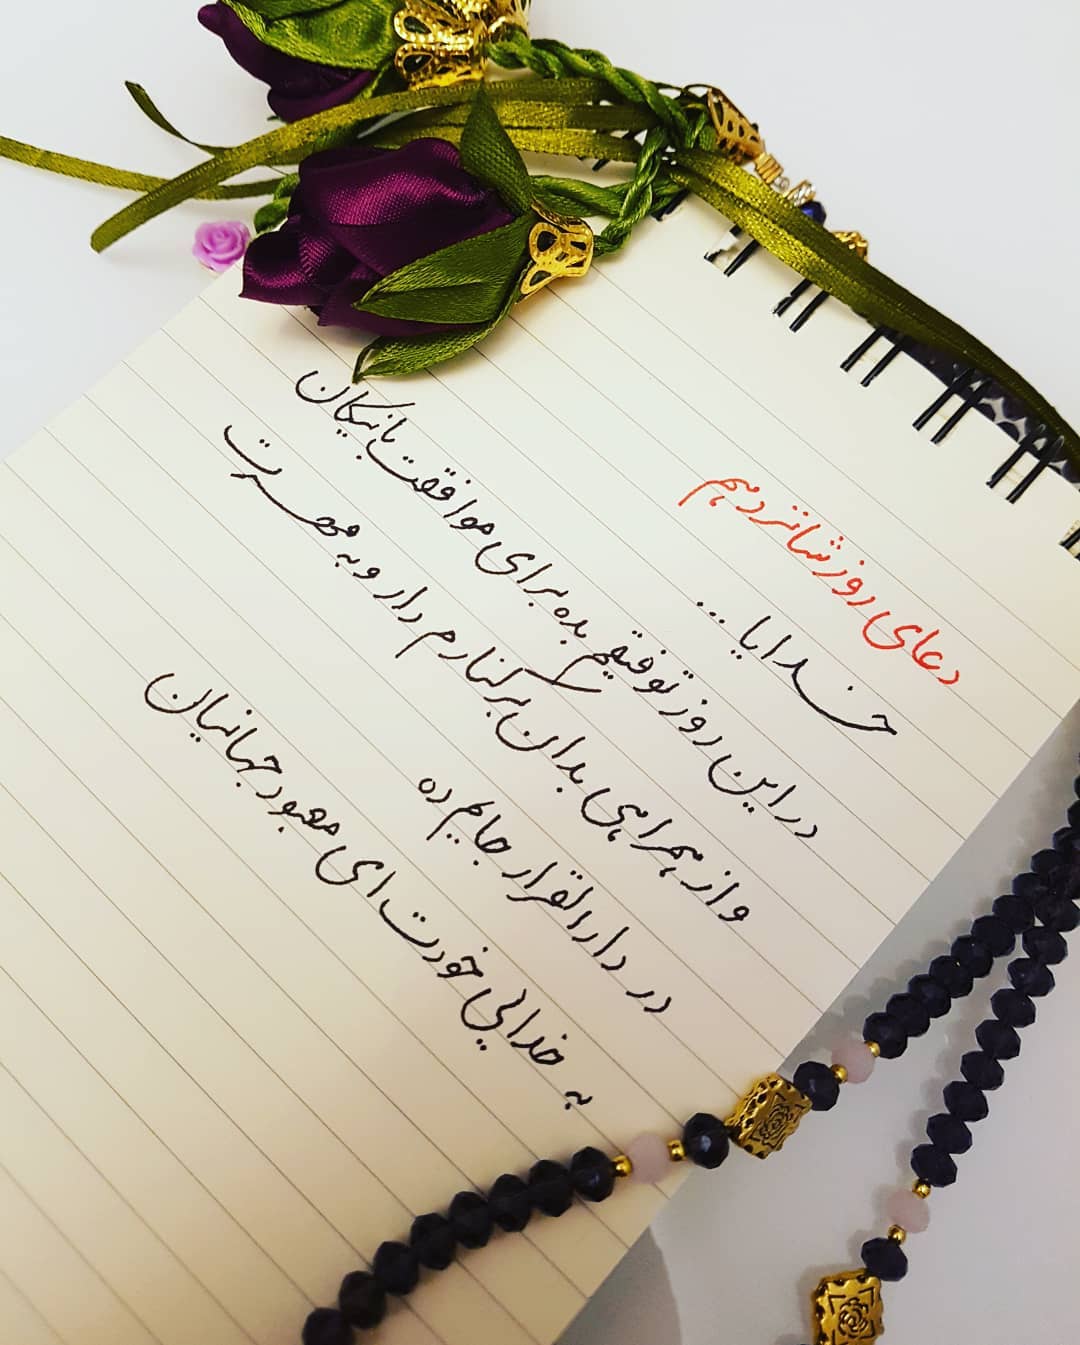 دعای روز شانزدهم
خدایا...
در این روز توفیقم بده برای موافقت با نیکان
و از همراهی بدان برکنارم دار و به مهرت
در دارالقرار جایم ده
به خدایی خودت ای معبود جهانیان